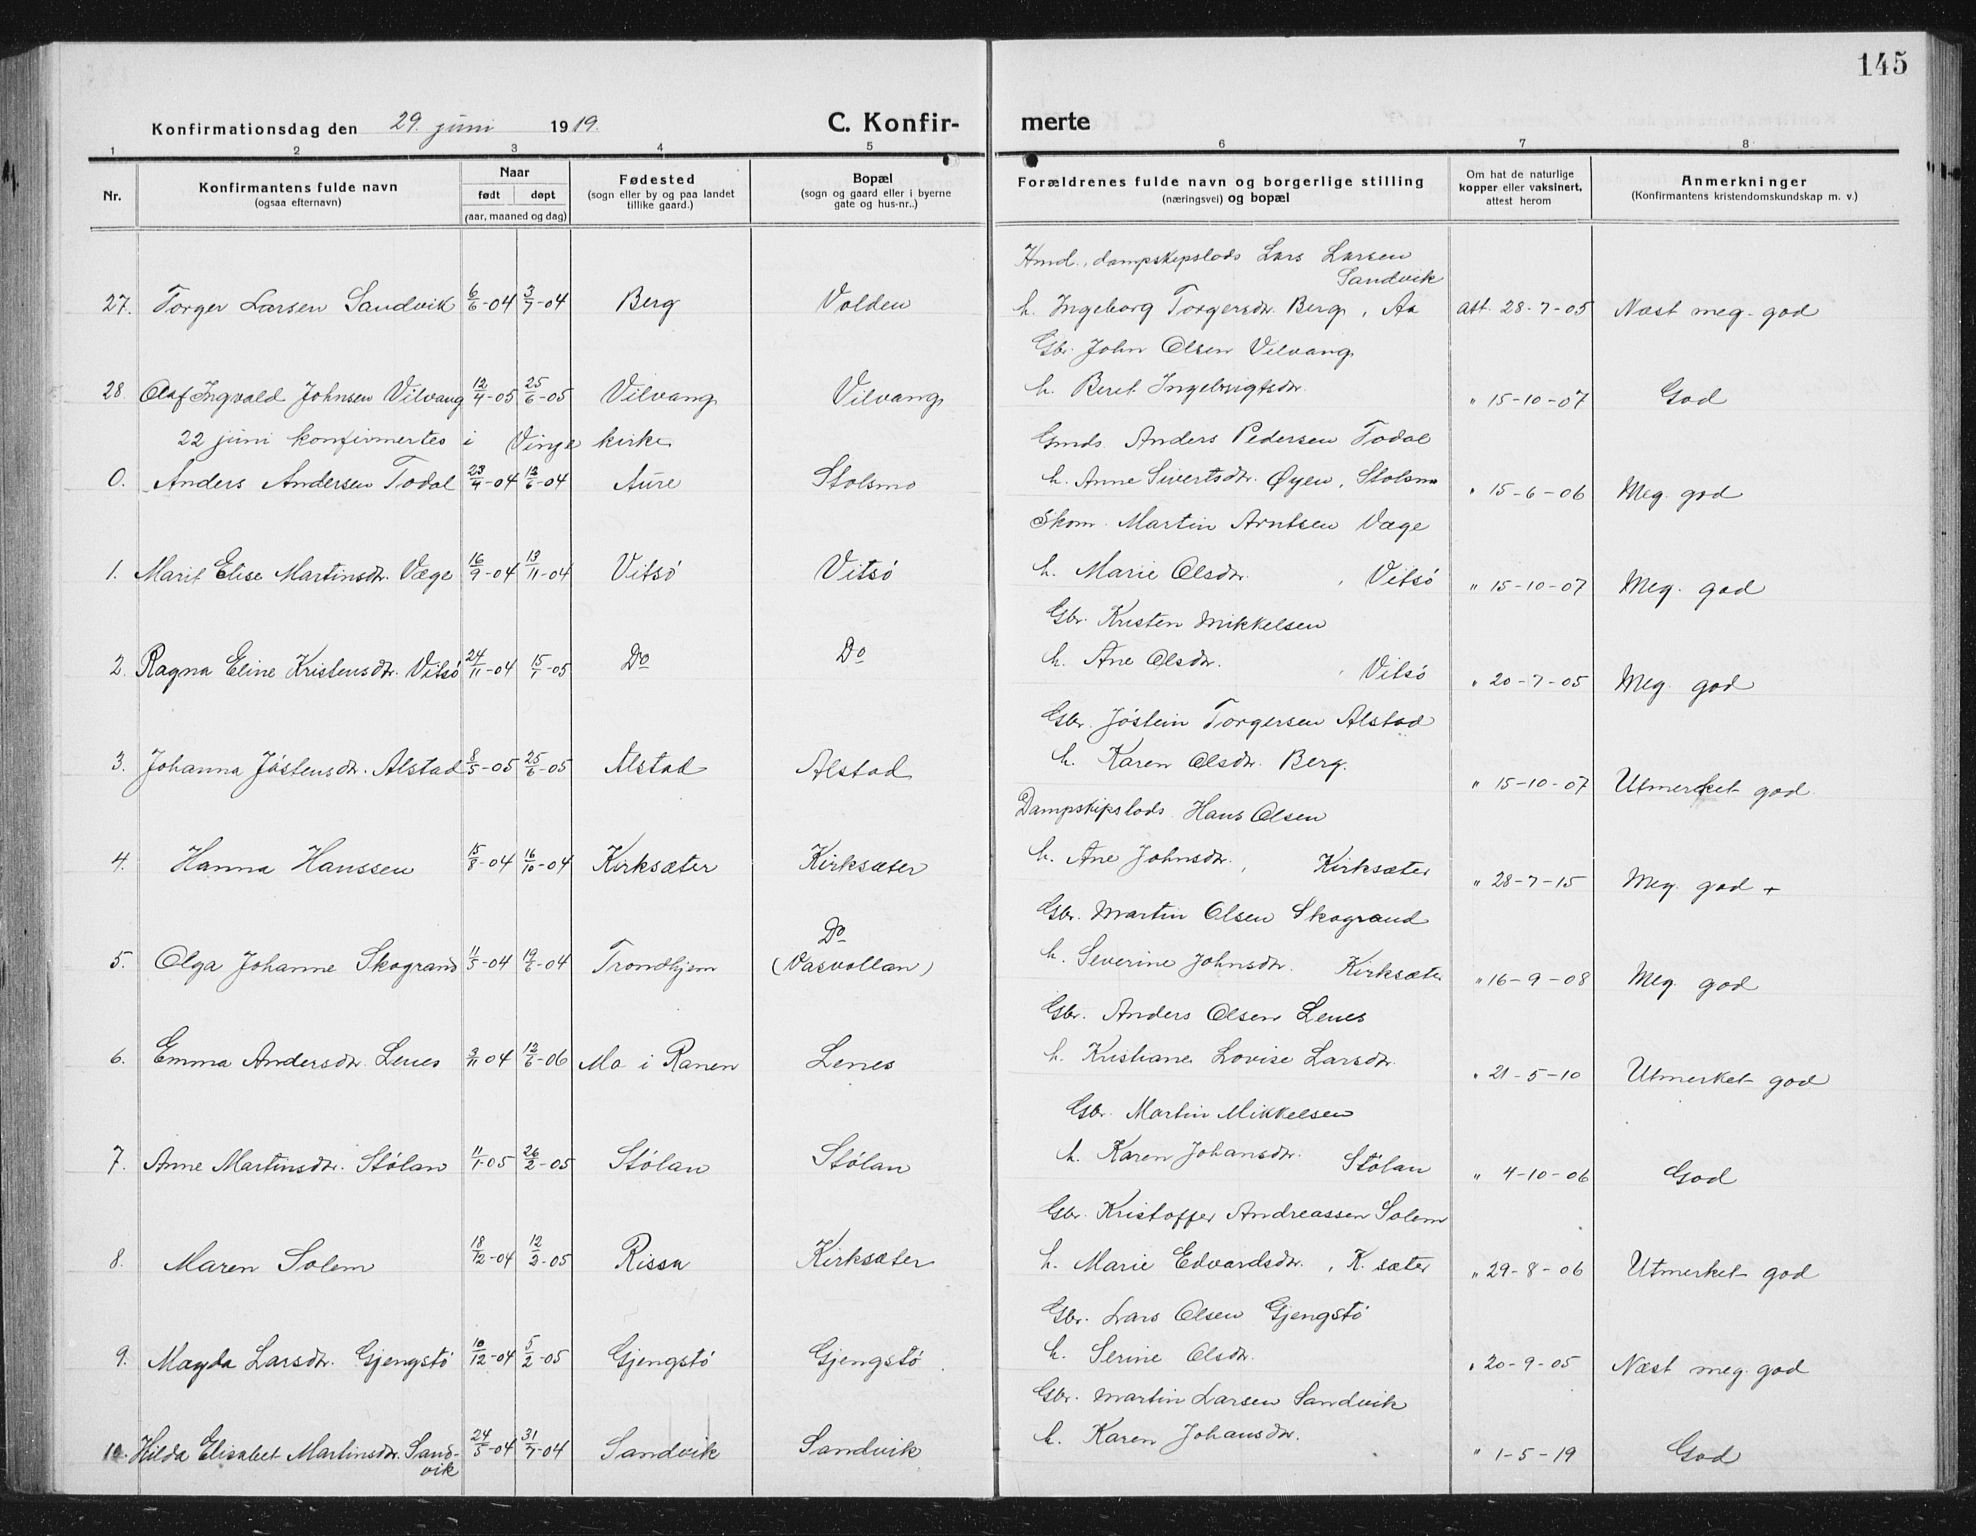 145
Konfirmationsdag den 29. juni 1919. C. Konfirmerte
1 2 3 4 5 6 7 8
Nr. Konfirmantens fulde navn (ogsaa efternavn) Naar født døpt (aar, maaned og dag) Fødested (sogn eller by og paa landet tillike gaard.) Bopæl (sogn og gaard eller i byerne gate og hus-nr..) Forældrenes fulde navn og borgerlige stilling (næringsvei) og bopæl Om hat de naturlige kopper eller vaksinert, attest herom Anmerkninger (Konfirmantens kristendomskundskap m. v.)
Hmd., dampskipslods Lars Larsen Sandvik
27. Torger Larsen Sandvik 6/6-04 3/7-04 Berg Volden h. Ingeborg Torgersdr. Berg, Aa att. 28-7-05 Næst meg. god
Gbr. John Olsen Vilvang
28. Olaf Ingvald Johnsen Vilvang 12/4-05 25/6-05 Vilvang Vilvang h. Beret Ingebrigtsdr. " 15-10-07 God
22 juni konfirmertes i Vinje kirke
Gmds. Anders Pedersen Todal
0. Anders Andersen Todal 23/4-04 12/6-04 Aure Stolsmo h. Anne Sivertsdr. Øyen, Stolsmo " 15-6-06 Meg. god
Skom. Martin Arntsen Væge
1. Marit Elise Martinsdr. Væge 16/9-04 13/11-04 Vitsö Vitsö h. Marie Olsdr., Vitsö " 15-10-07 Meg. god
Gbr. Kristen Mikkelsen
2. Ragna Eline Kristensdr. Vitsö 24/11-04 15/1-05 Do Do h. Ane Olsdr., Vitsö " 20-7-05 Meg. god
Gbr. Jöstein Torgersen Alstad
3. Johanna Jöstensdr. Alstad 8/5-05 25/6-05 Alstad Alstad h. Karen Olsdr. Berg. " 15-10-07 Utmerket god.
Dampskipslods Hans Olsen
4. Hanna Hanssen 15/8-04 16/10-04 Kirksæter Kirksæter h. Ane Johnsdr., Kirksæter " 28-7-15 Meg. god +
Gbr. Martin Olsen Skogrand
5. Olga Johanne Skogrand 11/5-04 19/6-04 Trondhjem Do (Vasvollan) h. Severine Johnsdr. Kirksæter " 16-9-08 Meg. god
Gbr. Anders Olsen Lenes
6. Emma Andersdr. Lenes 2/11 04 12/6-06 Mo i Ranen Lenes h. Kristiane Lovise Larsdr. " 21-5-10 Utmerket god
Gbr. Martin Mikkelsen
7. Anne Martinsdr. Stölan 11/1-05 26/2-05 Stölan Stölan h. Karen Johansdr. Stölan " 4-10-06 God
Gbr. Kristoffer Andreassen Solem
8. Maren Solem 18/12-04 12/2-05 Rissa Kirksæter h. Marie Edvardsdr., K. sæter " 29-8-06 Utmerket god
Gbr. Lars Olsen Gjengstö
9. Magda Larsdr. Gjengstö 10/12-04 5/2-05 Gjengstö Gjengstö h. Serine Olsdr. " 20-9-05 Næst meg. god
Gbr. Martin Larsen Sandvik
10. Hilda Elisabet Martinsdr. Sandvik 24/5-04 31/7-04 Sandvik Sandvik h. Karen Johansdr. " 1-5-19 God